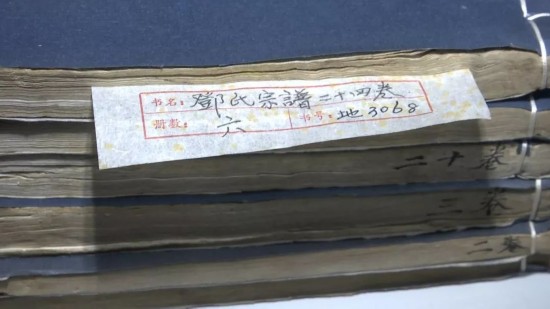 书名：鄧氏宗譜二十四卷
册数：六 书号：地3068
二十卷
三卷
二卷